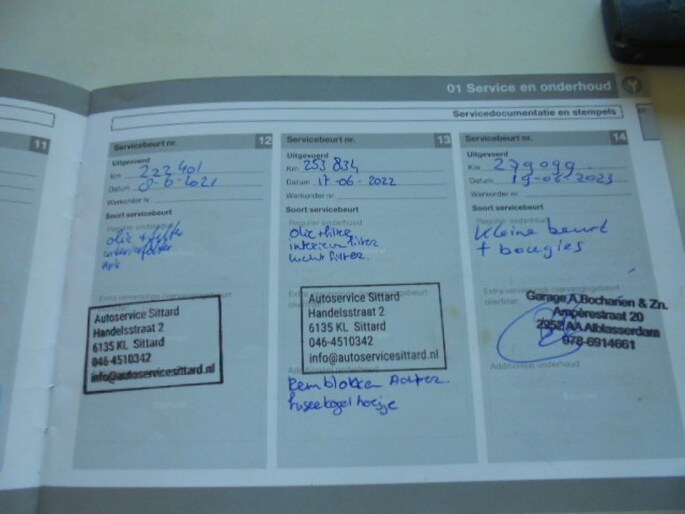 01 Service en onderhoud
Servicedocumentatie en stempels
11
Servicebeurt nr. 12
Uitgevoerd
Km 222401
Datum 8-6-2021
Werkorder nr.
Soort servicebeurt
Regulier onderhoud
olie + filter
interieurfilter
Apk
Autoservice Sittard
Handelsstraat 2
6135 KL Sittard
046-4510342
info@autoservicesittard.nl
Servicebeurt nr. 13
Uitgevoerd
Km 253834
Datum 17-06-2022
Werkorder nr.
Soort servicebeurt
Regulier onderhoud
olie + filter
interieurfilter
luchtfilter.
Autoservice Sittard
Handelsstraat 2
6135 KL Sittard
046-4510342
info@autoservicesittard.nl
Remblokken Achter
fuseekogel hoesje
Servicebeurt nr. 14
Uitgevoerd
Km 279099
Datum 19-06-2023
Werkorder nr.
Soort servicebeurt
Regulier onderhoud
kleine beurt
+ bougies
Garage A.Bocharien & Zn.
Ampèrestraat 20
2952 AA Alblasserdam
078-6914661
Additioneel onderhoud